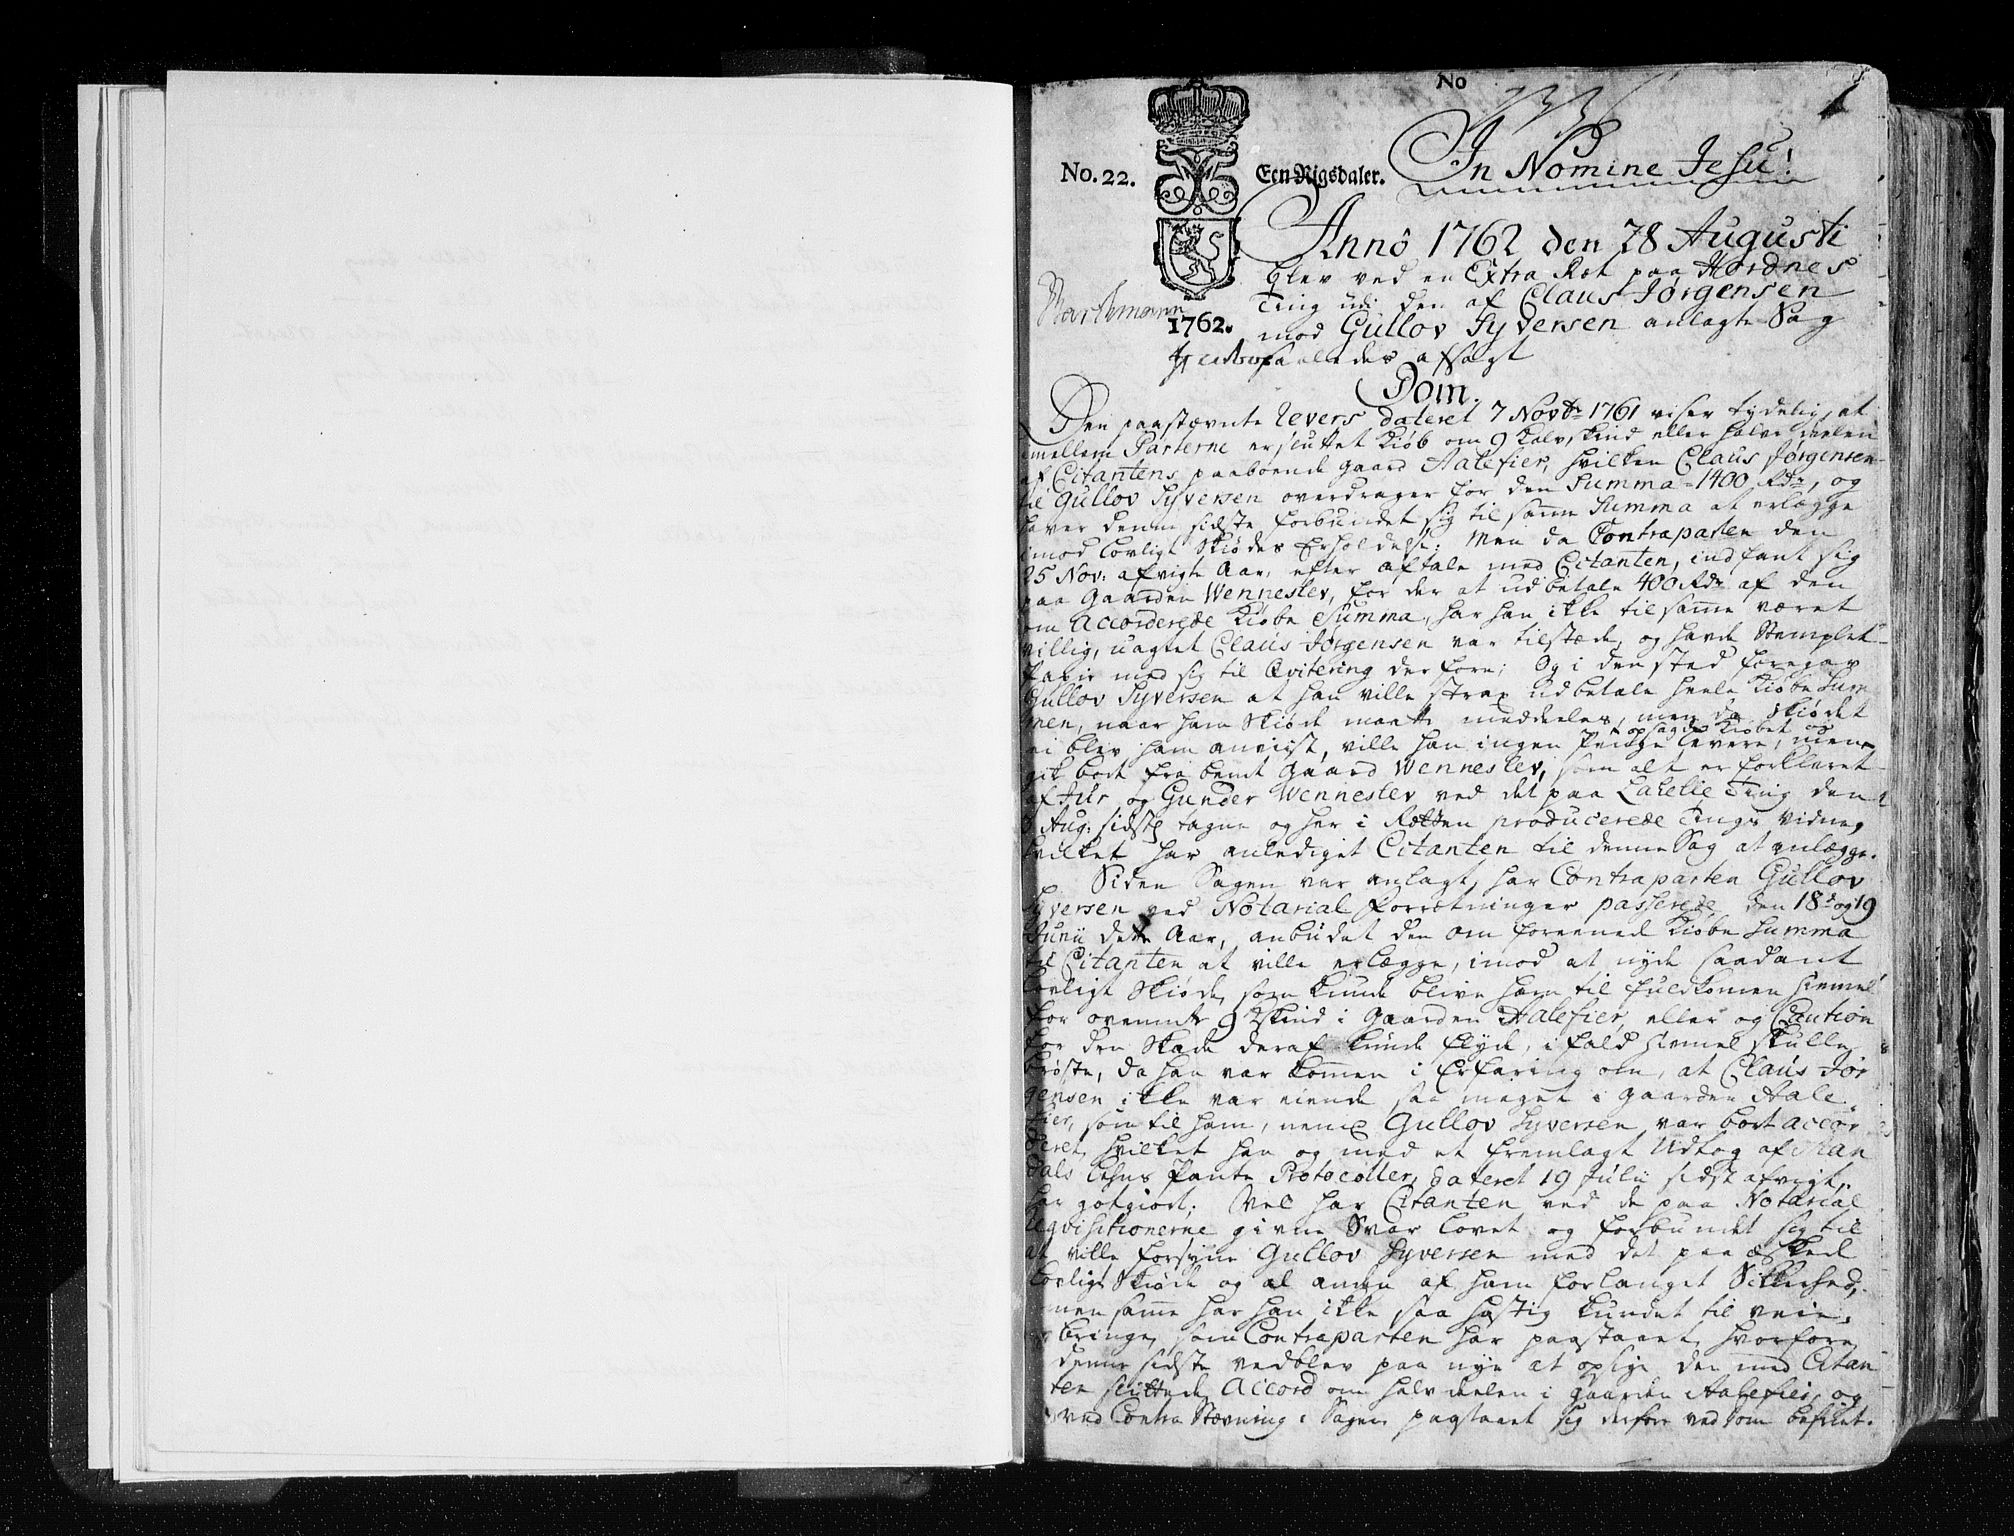 No
1
No. 22.
Een Rigsdaler.
In Nomine Jesu!
Anno 1762 den 28 Augusti
blev ved en Extra Ræt paa Hordnes
Ting udi den af Claus Jørgensen
1762.
mod Gullov Syversen anlagte Sag
saaledes afsagt
Dom.
Den paastævnte Revers dateret 7 Novbr 1761 viser tydelig, at
imellem Parterne er sluttet Kiøb om 9 Kalvskind eller halve deelen
af Citantens paaboende gaard Aalefier, hvilken Claus Jørgensen
til Gullov Syversen overdrager for den Summa 1400 Rdr, og
haver denne sidste forbundet sig til samme Summa at erlægge
imod lovligt Skiødes Erholdelse; Men da Contraparten den
25 Nov: afvigte Aar, efter aftale med Citanten, indfant sig
paa Gaarden Wenneslev, for der at udbetale 400 Rdr af den
om accorderede Kiøbe Summa, har han ikke til samme været
villig, uagtet Claus Jørgensen var tilstæde, og havde Stemplet
Papir med sig til Qvitering derfore; Og i den sted foregav
Gullov Syversen at han ville strax udbetale heele Kiøbe Sum
men, naar ham Skiøde maatte meddeeles, men da Skiødet
opsagde Kiøbet, og
ei blev ham anviist, ville han ingen Penge levere, men
gik bort fra bemt Gaard Wenneslev, som alt er forklaret
af Jur og Gunder Wenneslev ved det paa Lakelie Ting den
3 Aug: sidst tagne og her i Rætten producerede Tings Vidne,
hvilket har anlediget Citanten til denne Sag at anlægge.
Siden Sagen var anlagt, har Contraparten Gullov
Syversen ved Notarial Forrætninger passerede den 18de og 19
Junii dette Aar, anbudet den om foremeld Kiøbe Summa
til Citanten at ville erlægge, imod at nyde saadant
lovligt Skiøde, som kunde blive ham til fuldkomen Hiemel
for ovenmte 9 Skind i Gaarden Aalefier, eller og Caution
for den Skade deraf kunde flyde, i fald Hiemel skulle
brøste, da han var kommen i Erfaring om, at Claus Jør
gensen ikke var eiende saa meget i gaarden Aale
fier, som til ham, neml Gullov Syversen, var bort accor
deret, hvilket han og med et fremlagt Udtog af Man
dals Lehns Pante Protocoller, dateret 19 Julii sidst afvigt,
har gotgiort; Vel har Citanten ved de paa Notarial
Reqvisitionerne givne Svar lovet og forbundet sig til
at ville forsyne Gullov Syversen med det paa æskede
lovlige Skiøde og al anden af ham forlanget Sikkerhed,
men samme har han ikke saa hastig kundet til veie
bringe, som Contraparten har paastaaet, hvorfore
denne sidste vedblev paa nye at opsige den med Citan
ten sluttede Accord om halvdeelen i gaarden Aalefier, og
ved Contra Stævning i Sagen paastaaet sig derfore ved Dom befriet.